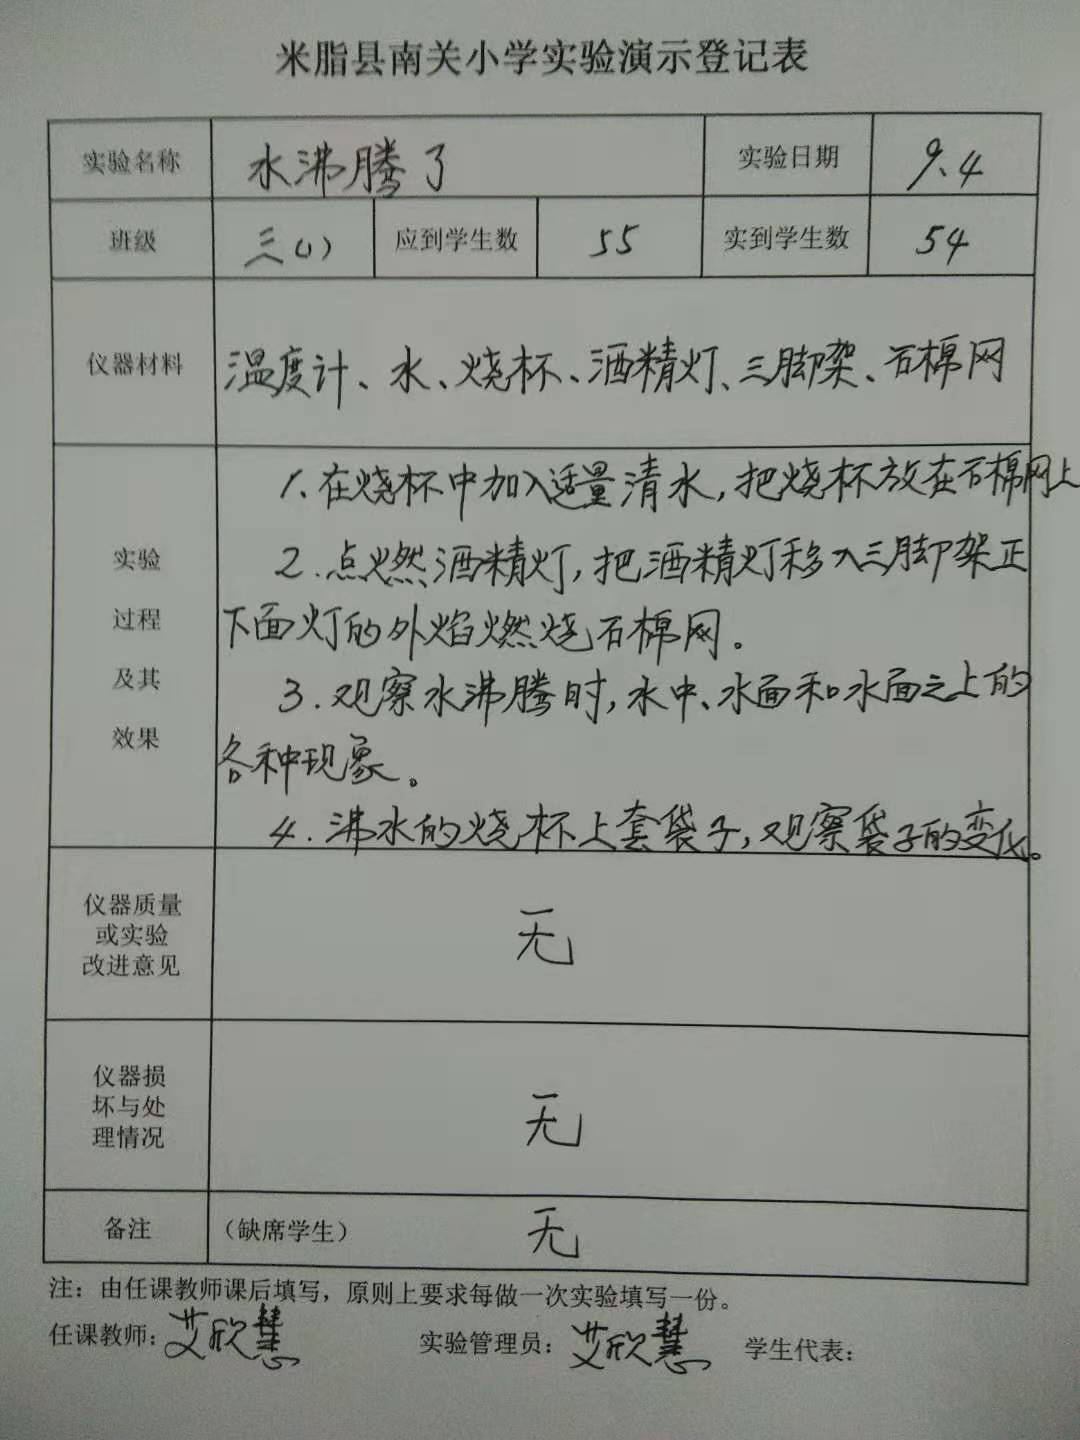 米脂县南关小学实验演示登记表
实验名称 水沸腾了 实验日期 9.4
班级 三(1) 应到学生数 55 实到学生数 54
仪器材料 温度计、水、烧杯、酒精灯、三脚架、石棉网
实验
过程
及其
效果
1.在烧杯中加入适量清水,把烧杯放在石棉网上
2.点燃酒精灯,把酒精灯移入三脚架正
下面灯的外焰燃烧石棉网。
3.观察水沸腾时,水中、水面和水面之上的
各种现象。
4.沸水的烧杯上套袋子,观察袋子的变化。
仪器质量
或实验
改进意见
无
仪器损
坏与处
理情况
无
备注 (缺席学生) 无
注:由任课教师课后填写,原则上要求每做一次实验填写一份。
任课教师:艾欣慧 实验管理员:艾欣慧 学生代表: